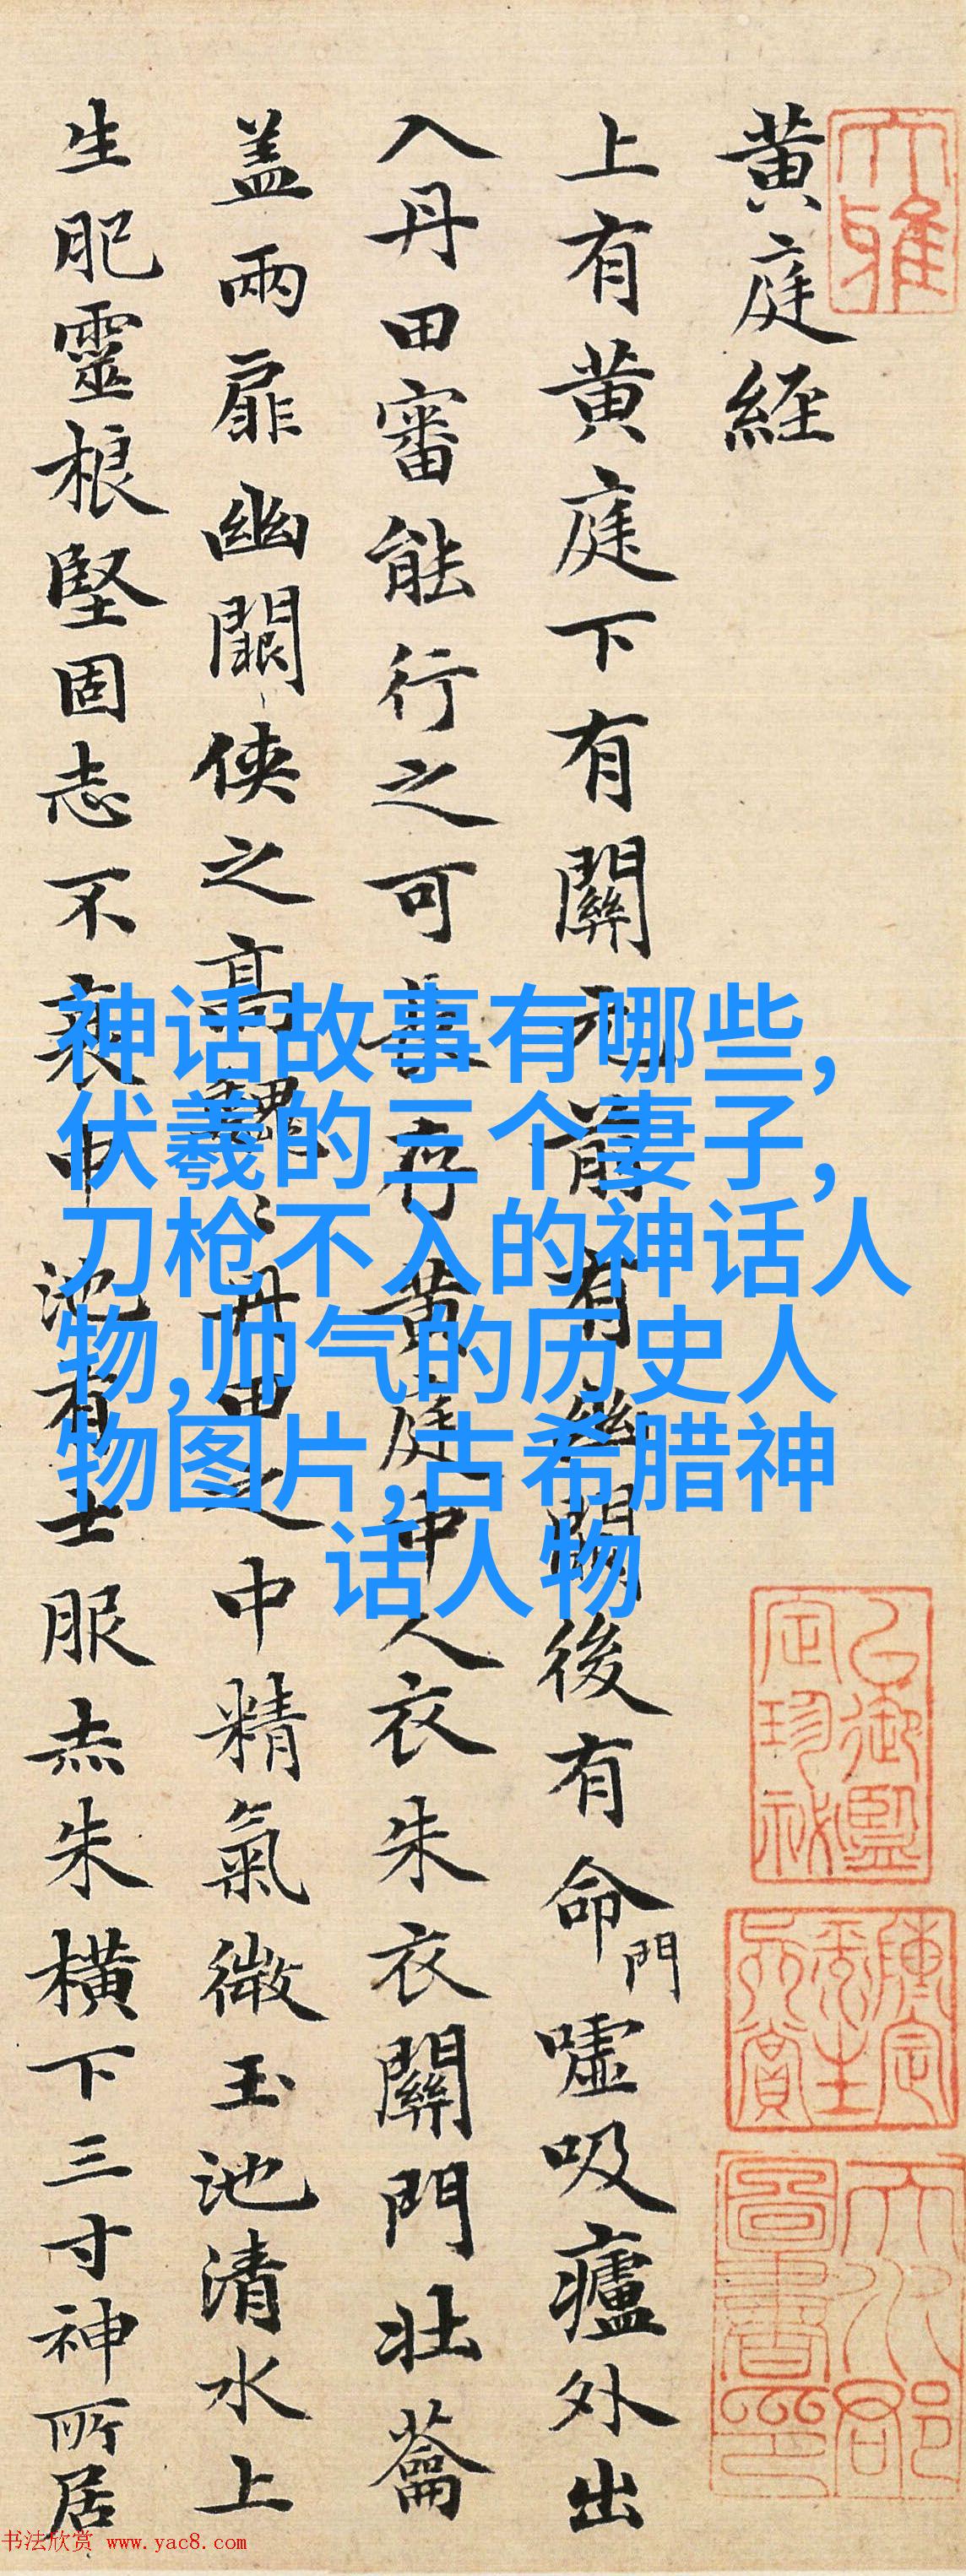 黄庭経
上有黄庭下有關元前有幽闕後有命門嘘吸廬外出
入丹田審能行之可長存黄庭中人衣朱衣關門壮蘥
盖兩扉幽闕侠之高魏丹田之中精氣微玉池清水上
生肥靈根堅固志不衰中池有士服赤朱横下三寸神所居
神话故事有哪些,
伏羲的三个妻子,
刀枪不入的神话人
物,帅气的历史人
物图片,古希腊神
话人物
大雅
乙御
书法欣赏 www.yac8.com